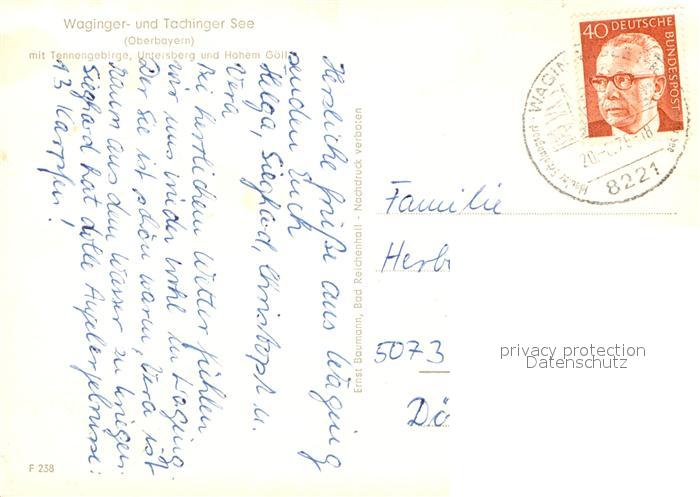 Waginger- und Tachinger See
(Oberbayern)
mit Tennengebirge, Untersberg und Hohem Göll
Herzliche Grüße aus Waging
senden Euch
Helga, Sieghard, Christoph u.
Vera
Bei herrlichem Wetter fühlen
wir uns wieder wohl in Waging.
Der See ist schön warm, Vera ist
kaum aus dem Wasser zu kriegen.
Sieghard hat dolle Angelergebnisse:
13 Karpfen!
Ernst Baumann, Bad Reichenhall - Nachdruck verboten
F 238
40 DEUTSCHE BUNDESPOST
WAGIN
20.
18
8221
Familie
Herb
5073
Dö
privacy protection
Datenschutz